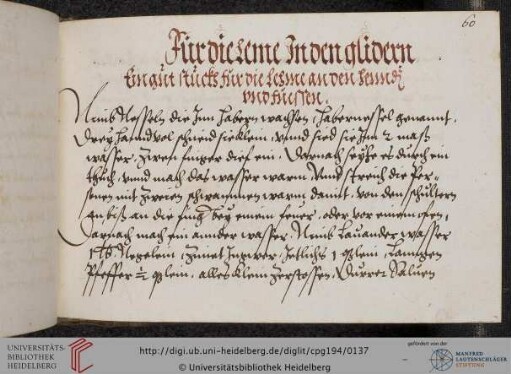 60
Für die Leme In den glidern
Ein gut stückh für die Lehme an den hennd
vnd fuessen.
Nimb Nesseln die Im habern wachsen, habernessel genannt,
Drey hanndvol schneid sie klein, vnnd sied sie Im 2 maß
wasser, Zwen finger dief ein, Darnach seyhe es durch ein
thuch, vnnd mach das wasser warm Vnnd streich die Per-
sonen mit Zweien schwammen warm damit, von den schultern
an biß an die bey einem feuer, oder vor einem ofen,
Darnach mach ein annder wasser, Nimb Lauander wasser
1 lb. Negelein, Zimet Ingwer, Jetlichs 1 Lanngen
Pfeffer ½ alles klein Zerstossen, Durrer Saluen
UNIVERSITÄTS-
BIBLIOTHEK
HEIDELBERG
http://digi.ub.uni-heidelberg.de/diglit/cpg194/0137
© Universitätsbibliothek Heidelberg
gefördert von der
MANFRED
LAUTENSCHLÄGER
STIFTUNG